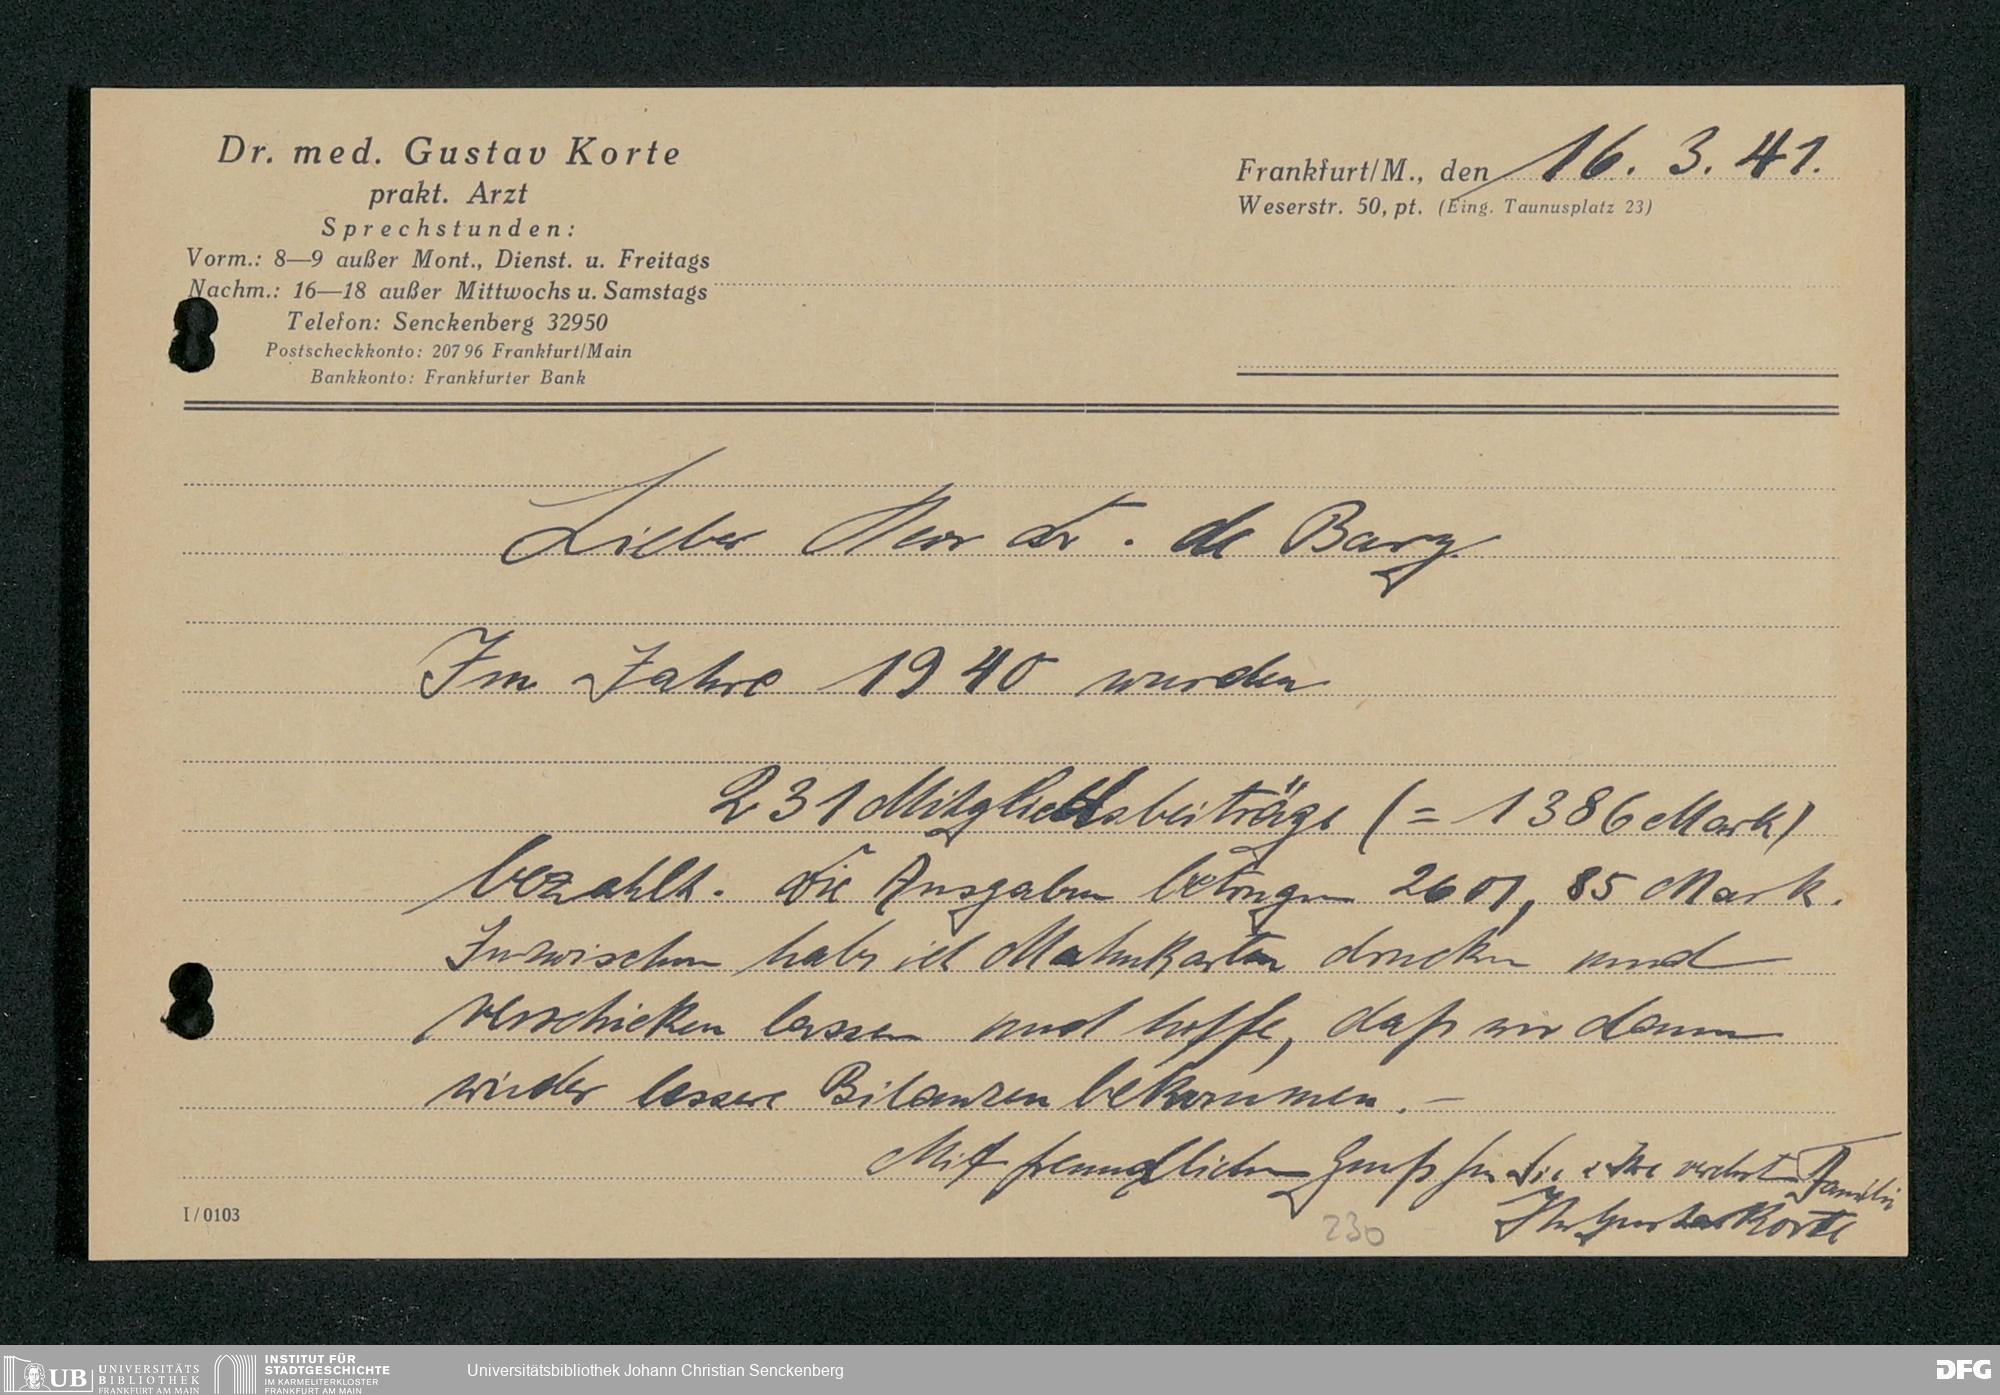 Dr. med. Gustav Korte
prakt. Arzt
Sprechstunden:
Vorm.: 8—9 außer Mont., Dienst. u. Freitags
Nachm.: 16—18 außer Mittwochs u. Samstags
Telefon: Senckenberg 32950
Postscheckkonto: 20796 Frankfurt/Main
Bankkonto: Frankfurter Bank
Frankfurt/M., den 16. 3. 41.
Weserstr. 50, pt. (Eing. Taunusplatz 23)
Lieber Herr Dr. de Bary
Im Jahre 1940 wurden
231 Mitgliedsbeiträge (= 1386 Mark)
bezahlt. Die Ausgaben betrugen 2601,85 Mark.
Inzwischen habe ich Mahnkarten drucken und
verschicken lassen und hoffe, daß wir dann
wieder bessere Bilanzen bekommen. —
Mit freundlichem Gruß für Sie u Ihre verehrte Familie
Ihr Gustav Korte
230
I/0103
UB UNIVERSITÄTS
BIBLIOTHEK
FRANKFURT AM MAIN
INSTITUT FÜR
STADTGESCHICHTE
IM KARMELITERKLOSTER
FRANKFURT AM MAIN
Universitätsbibliothek Johann Christian Senckenberg
DFG